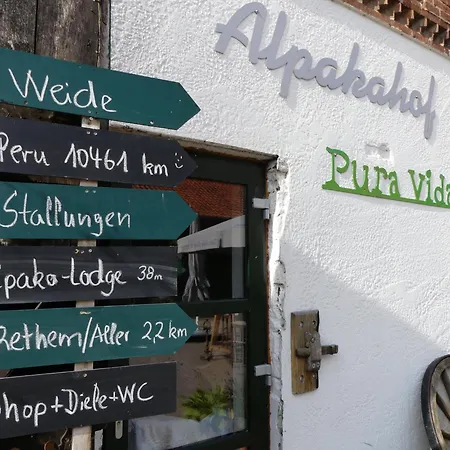 Weide
Peru 10461 km
Stallungen
lpako-Lodge 38m
Rethem/Aller 2,2 km
Shop+Diele+WC
Alpakahof
Pura Vida